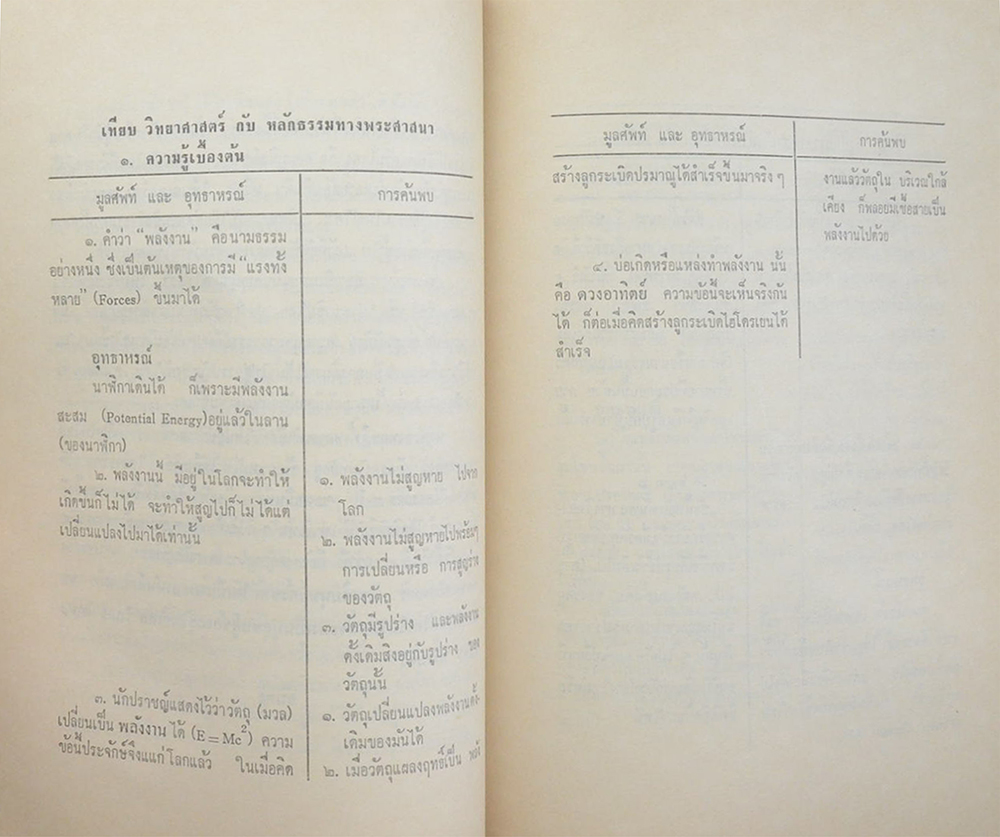 เทียบ วิทยาศาสตร์ กับ หลักธรรมทางพระศาสนา
๑. ความรู้เบื้องต้น
มูลศัพท์ และ อุทธาหรณ์
การค้นพบ
๑. คำว่า "พลังงาน" คือนามธรรม
อย่างหนึ่ง ซึ่งเป็นต้นเหตุของการมี "แรงทั้ง
หลาย" (Forces) ขึ้นมาได้
อุทธาหรณ์
นาฬิกาเดินได้ ก็เพราะมีพลังงาน
สะสม (Potential Energy)อยู่แล้วในลาน
(ของนาฬิกา)
๒. พลังงานนี้ มีอยู่ในโลกจะทำให้
เกิดขึ้นก็ไม่ได้ จะทำให้สูญไปก็ไม่ได้แต่
เปลี่ยนแปลงไปมาได้เท่านั้น
๓. นักปราชญ์แสดงไว้ว่าวัตถุ (มวล)
เปลี่ยนเป็น พลังงาน ได้ (E=Mc²) ความ
ข้อนี้ประจักษ์จึงแแก่โลกแล้ว ในเมื่อคิด
๑. พลังงานไม่สูญหาย ไปจาก
โลก
๒. พลังงานไม่สูญหายไปพร้อมๆ
การเปลี่ยนหรือ การสูญร่าง
ของวัตถุ
๓. วัตถุมีรูปร่าง และพลังงาน
ดั้งเดิมสิงอยู่กับรูปร่าง ของ
วัตถุนั้น
๑. วัตถุเปลี่ยนแปลงพลังงานดั้ง-
เดิมของมันได้
๒. เมื่อวัตถุแผลงฤทธิ์เป็น พลัง
มูลศัพท์ และ อุทธาหรณ์
การค้นพบ
สร้างลูกระเบิดปรมาณูได้สำเร็จขึ้นมาจริง ๆ
๔. บ่อเกิดหรือแหล่งทำพลังงาน นั้น
คือ ดวงอาทิตย์ ความข้อนี้จะเห็นจริงกัน
ได้ ก็ต่อเมื่อคิดสร้างลูกระเบิดไฮโดรเยนได้
สำเร็จ
งานแล้ววัตถุใน บริเวณใกล้
เคียง ก็พลอยมีเชื้อสายเป็น
พลังงานไปด้วย